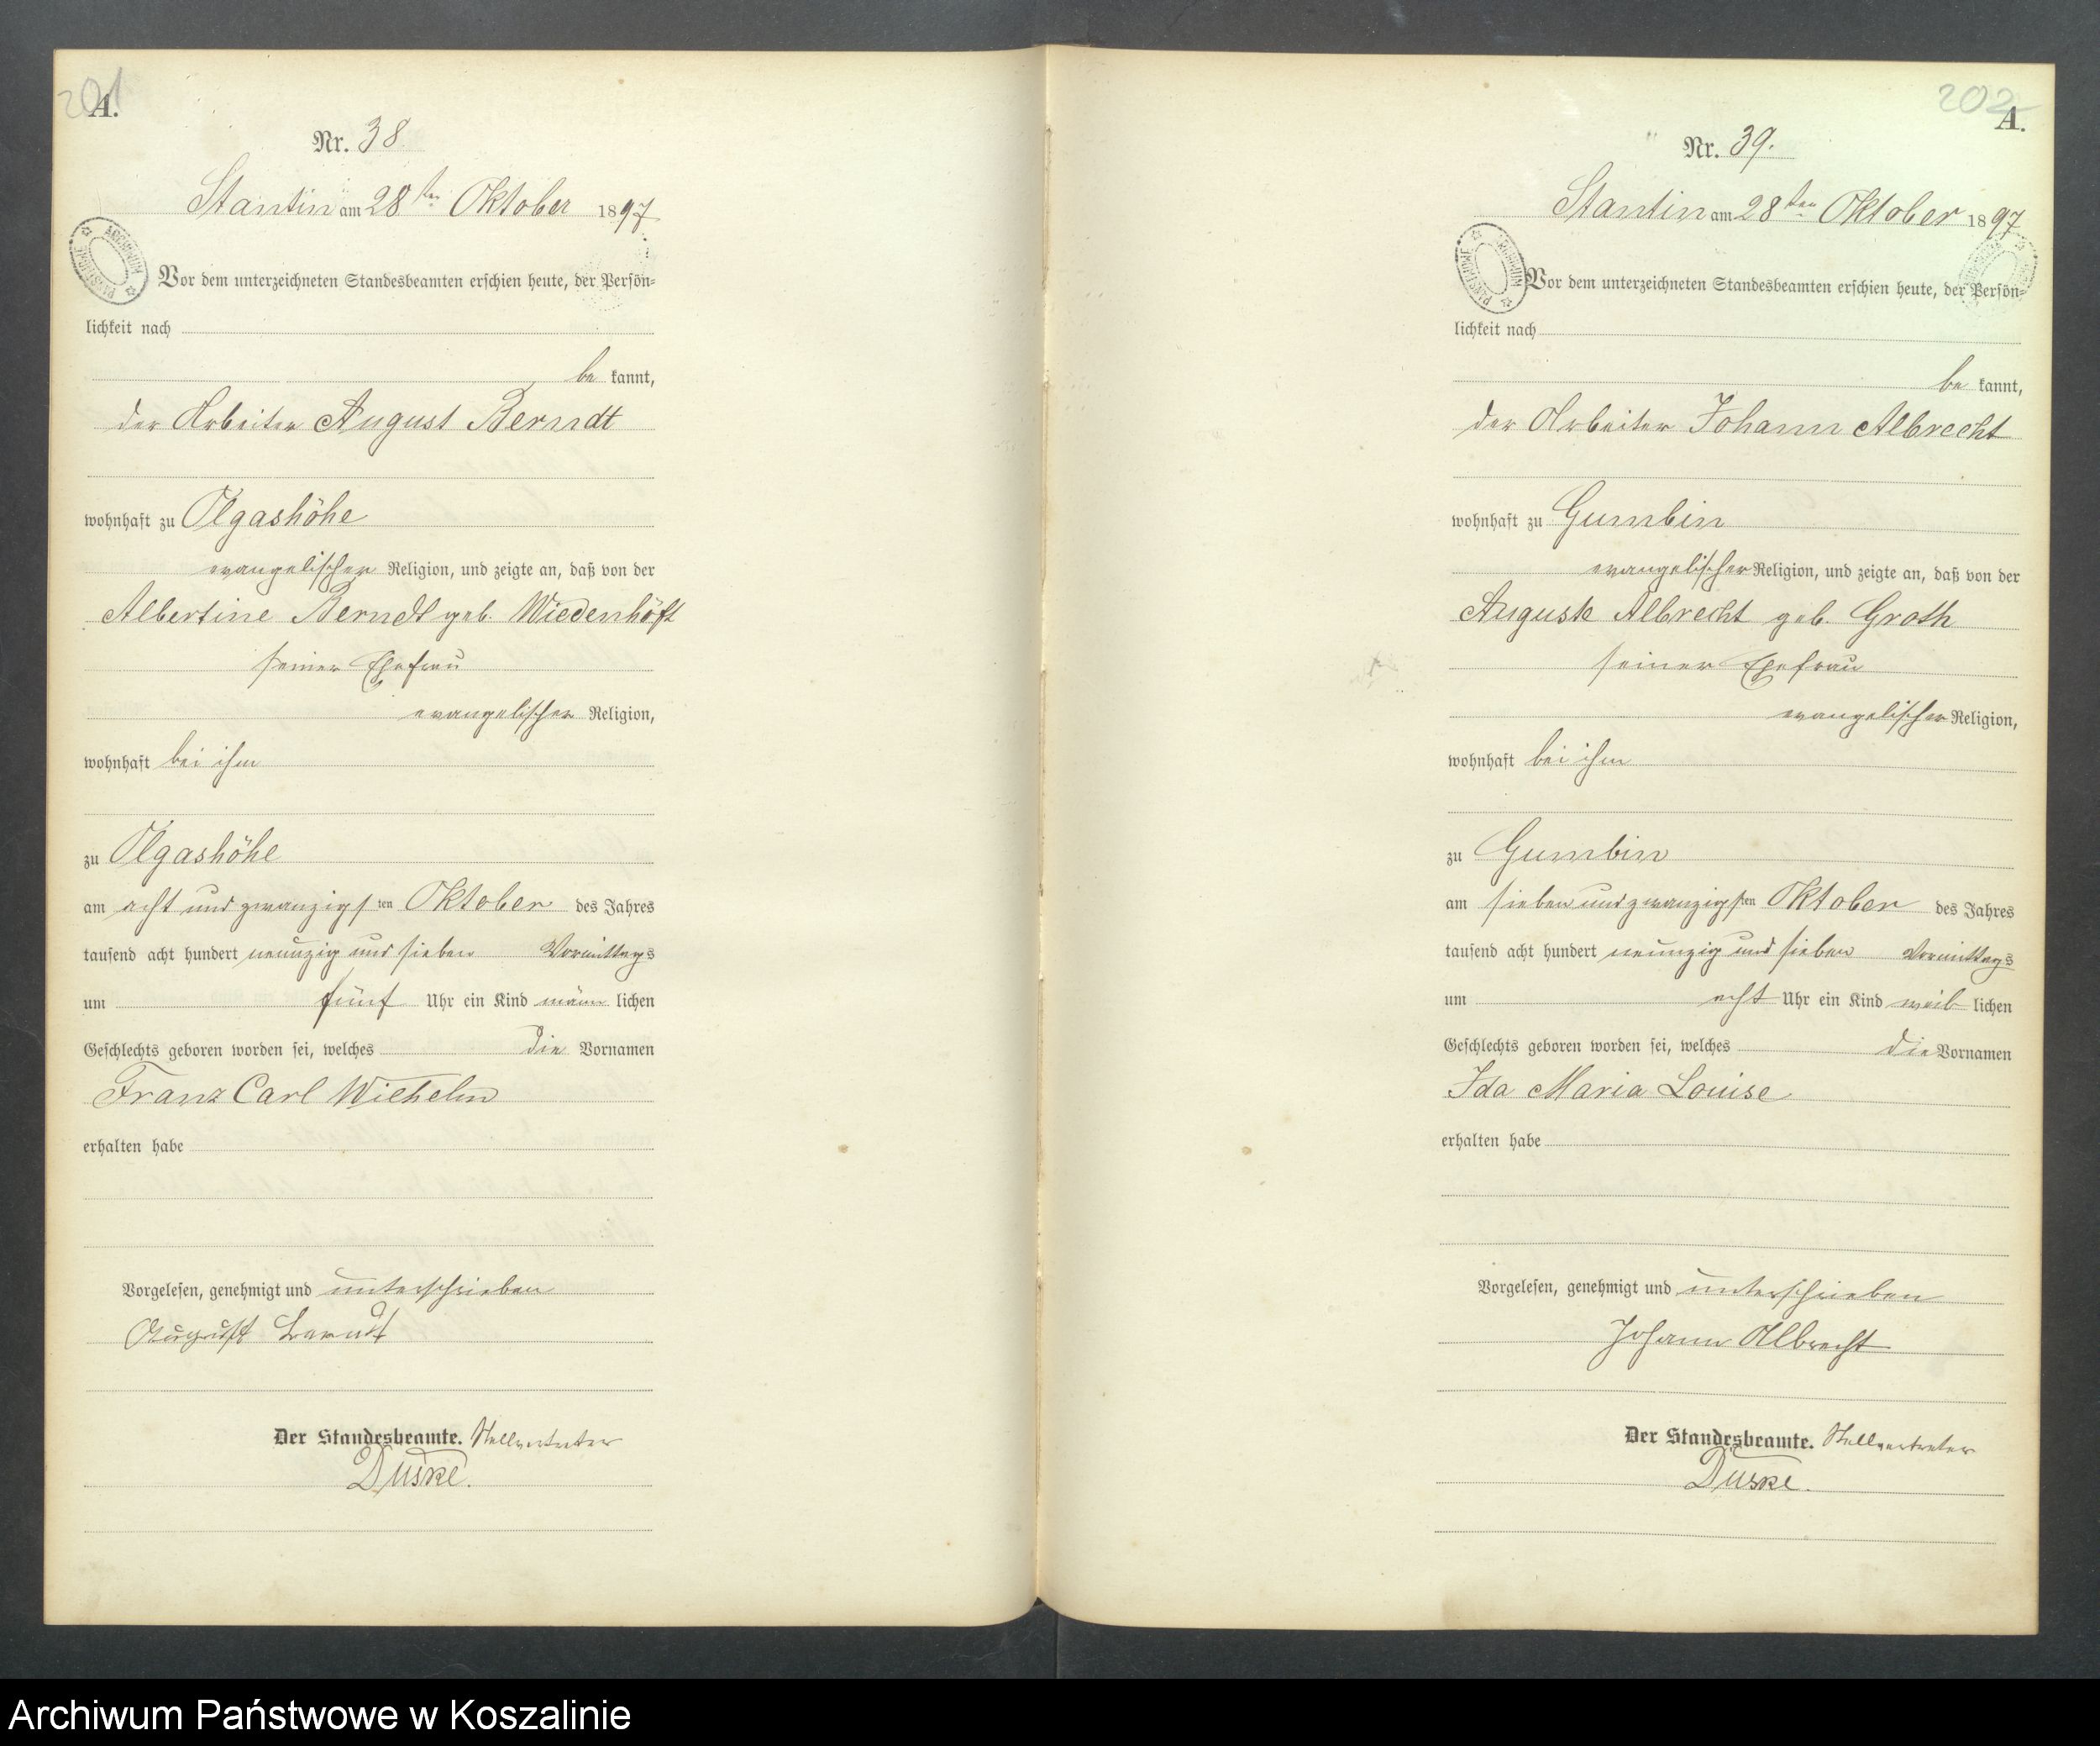 201
A.
Nr. 38
Stantin am 28ten Oktober 1897
Vor dem unterzeichneten Standesbeamten erschien heute, der Persön=
lichkeit nach
be kannt,
der Arbeiter August Berndt
wohnhaft zu Olgashöhe
evangelischer Religion, und zeigte an, daß von der
Albertine Berndt geb. Wiedenhöft
seiner Ehefrau
evangelischer Religion,
wohnhaft bei ihm
zu Olgashöhe
am acht und zwanzigsten Oktober des Jahres
tausend acht hundert neunzig und sieben Vormittags
um fünf Uhr ein Kind männ lichen
Geschlechts geboren worden sei, welches die Vornamen
Franz Carl Wilhelm
erhalten habe
Vorgelesen, genehmigt und unterschrieben
August Berndt
Der Standesbeamte. Stellvertreter
Duske.
202
A.
Nr. 39.
Stantin am 28ten Oktober 1897
ARCHIWUM PAŃSTWOWE
Vor dem unterzeichneten Standesbeamten erschien heute, der Persön=
lichkeit nach
be kannt,
der Arbeiter Johann Albrecht
wohnhaft zu Gumbin
evangelischer Religion, und zeigte an, daß von der
Auguste Albrecht geb. Groth
seiner Ehefrau
evangelischer Religion,
wohnhaft bei ihm
zu Gumbin
am sieben und zwanzigsten Oktober des Jahres
tausend acht hundert neunzig und sieben Vormittags
um acht Uhr ein Kind weib lichen
Geschlechts geboren worden sei, welches die Vornamen
Ida Maria Louise
erhalten habe
Vorgelesen, genehmigt und unterschrieben
Johann Albrecht
Der Standesbeamte. Stellvertreter
Duske.
Archiwum Państwowe w Koszalinie